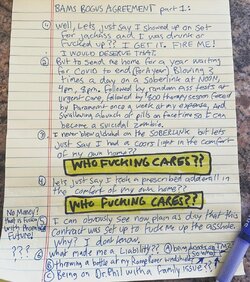 BAMS BOGUS AGREEMENT part 1:
1 Well, Lets just Say I showed up on Set
for jackass and I was drunk or
fucked up?? I GET it. FIRE ME!
I WOULD DESERVE THAT.
2 But to Send me home for a year waiting
for Covid to end (for a year) Blowing 3
times a day on a Soberlink at NOON,
4pm, 8pm. followed by random piss tests at
urgent care, followed by 800 therapy session forced
by Paramount once a week at my expense, AND
Swallowing a bowl of pills on facetime so I can
become a suicidal zombie.
3 I never blew/dirty on the SOBERLINK but lets
just Say I had a COORS light in the Comfort
of my own home??
WHO FUCKING CARES??
4 Lets just Say I took a prescribed adderall in
the comfort of my own home??
WHO FUCKING CARES??
No Money?
that is fuckin
with Promise
Future!
???
5 I can obviously see now plain as day that this
Contract was set up to fuck me up the asshole.
Why? I dont know.
6 what made me a Liability??
B throwing a bottle at my
C Being on Dr. Phil with a family issue??